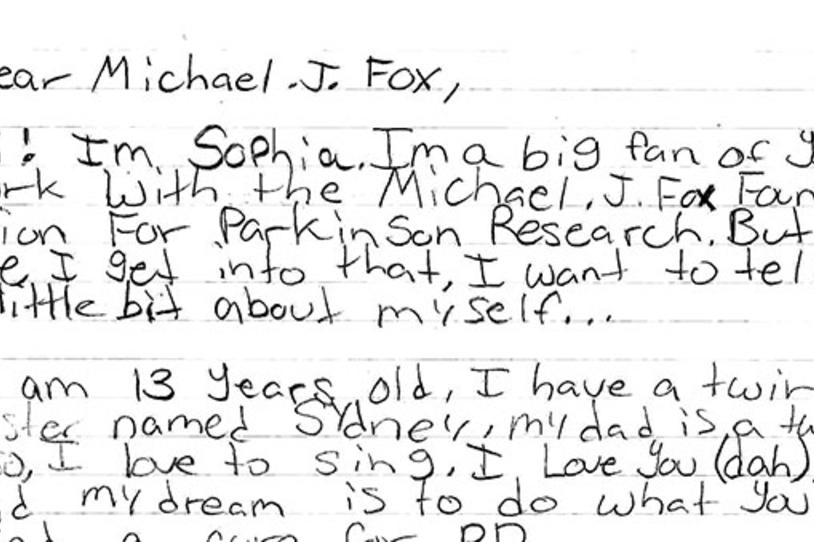 ear Michael .J. Fox,
! Im Sophia. Im a big fan of y
rk With the Michael .J. Fox Foun
ion For Parkinson Research. But
e I get into that, I want to tel
little bit about myself...
am 13 years old, I have a twin
ster named Sydney, my dad is a tw
so, I love to sing. I Love You (dah)
d my dream is to do what you
a cure for PD